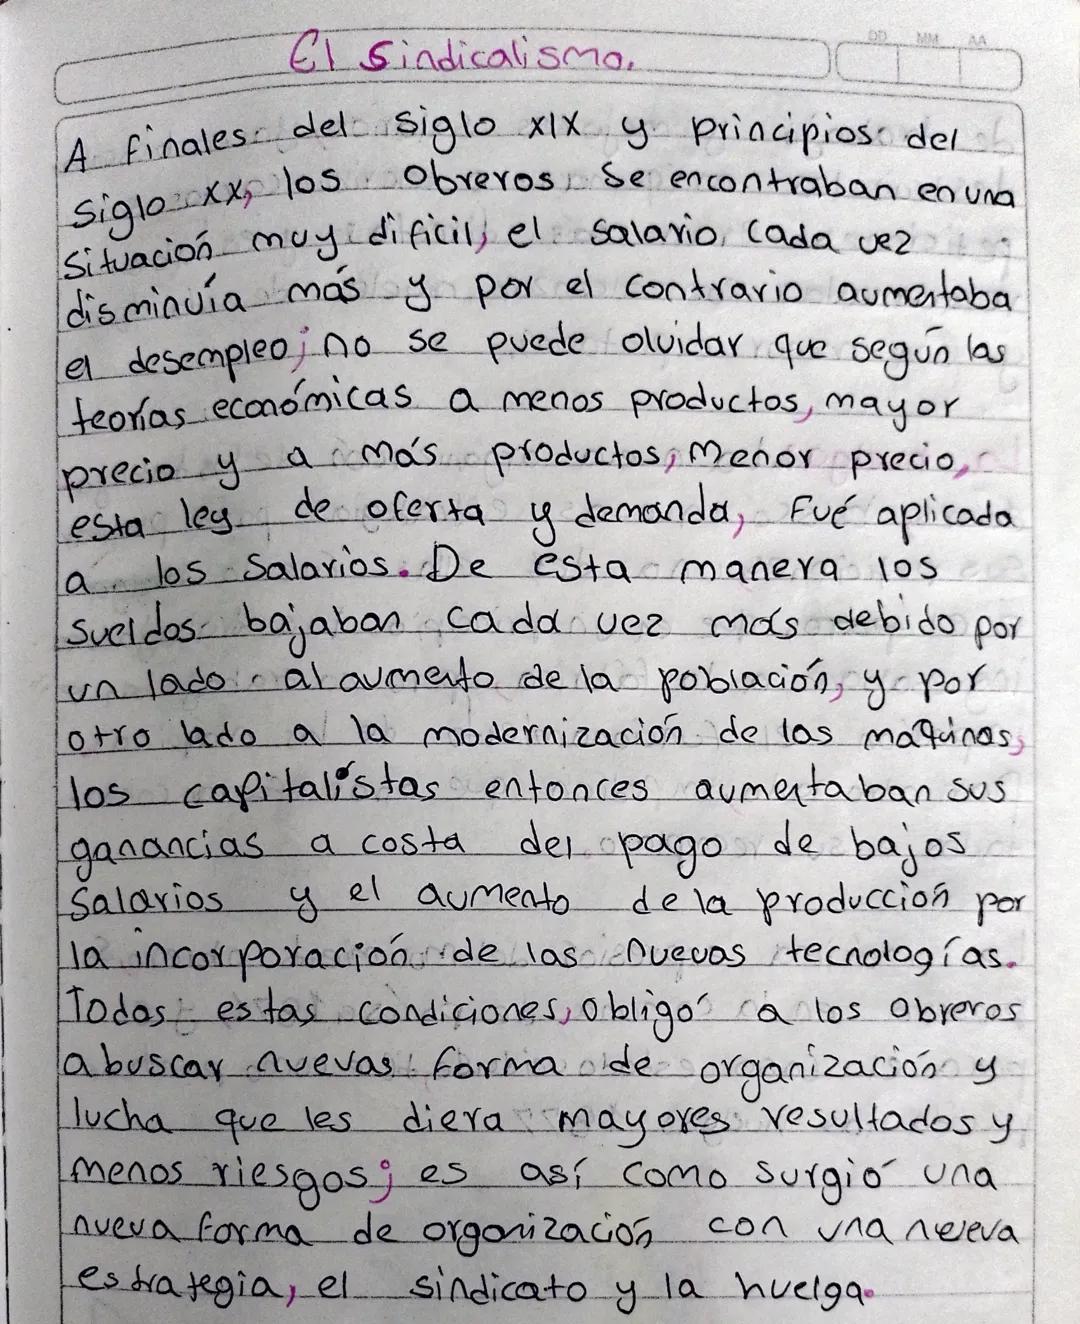 El Sindicalismo.
DD MM AA
A finales del siglo XIX y principios del
siglo XX, los obreros se encontraban en una
situación muy dificil, el salario, cada vez
disminuía más y por el contrario aumentaba
el desempleo; no se puede olvidar que según las
teorías económicas a menos productos, mayor
precio y a más productos, menor precio,
esta ley de oferta y demanda, Fué aplicada
a los Salarios. De esta manera los
sueldos bajaban cada vez más debido por
un lado al aumento de la población, y por
otro lado a la modernización de las maquinas,
los capitalistas entonces aumentaban sus
ganancias a costa del pago de bajos
Salarios y el aumento de la producción por
la incorporación de las nuevas tecnologías.
Todas estas condiciones, obligó a los obreros
a buscar nuevas forma de organización y
lucha que les diera mayores resultados y
menos riesgos; es así como surgió una
nueva forma de organización con una nueva
estrategia, el sindicato y la huelga.